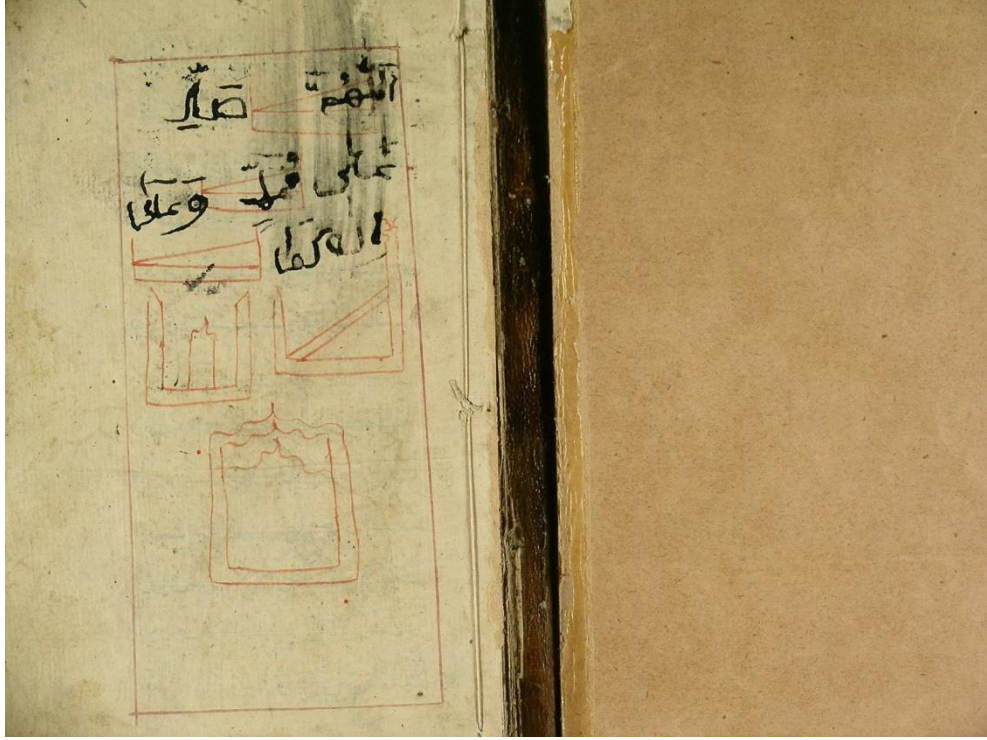 اللَّهُمَّ صَلِّ
عَلَى محمد وَعَلَى